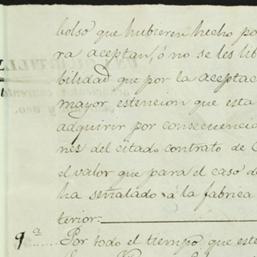 bolso que hubieren hecho po
ra aceptar, ó no se les lib
bilidad que por la aceptac
mayor estencion que esta
adquirir por consecuencia
nes del citado contrato de C
el valor que para el caso d
ha señalado á la fabrica
terior:
9ª Por todo el tiempo que este